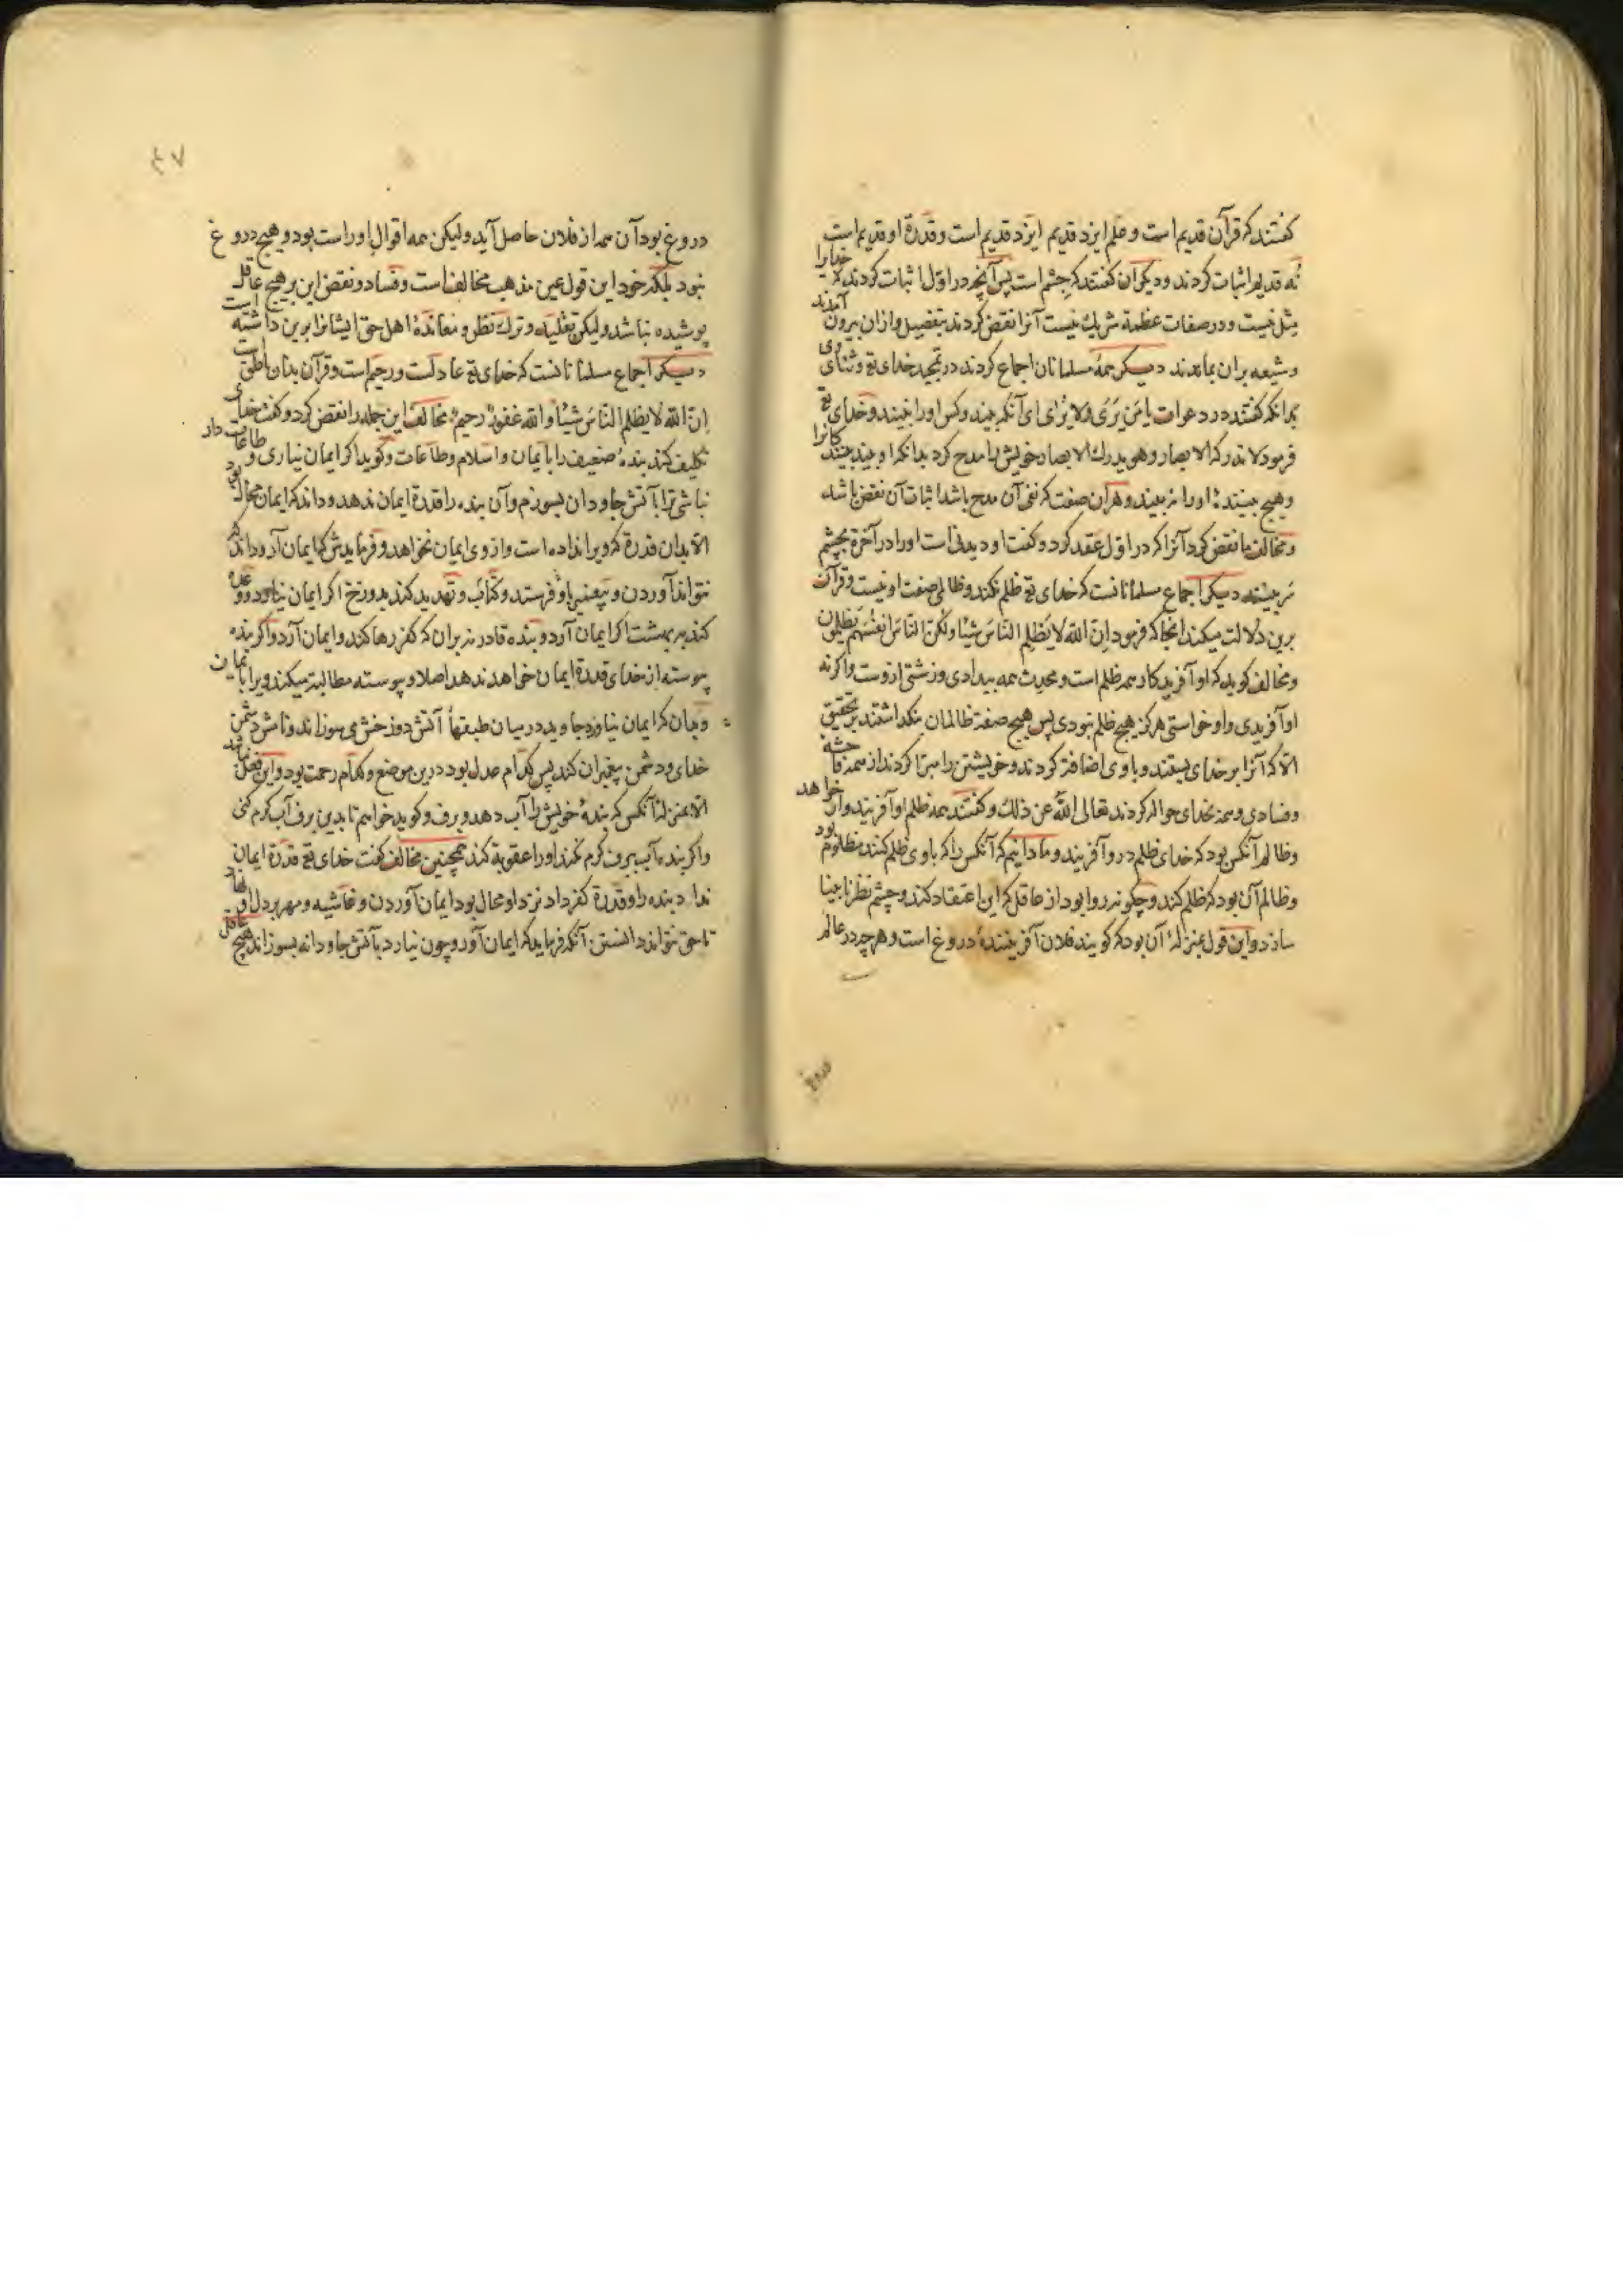 گفتند که قرآن قدیم است و علم ایزد قدیم ایزد قدیم است و قدرة او قدیم است
نه قدیم اثبات کردند و دیگران گفتند که جسم است پس آنچه در اول اثبات کردند که خدایرا
مثل نیست و در صفات عظمة شریک نیست آنرا نقض کردند بتفصیل و از ان بیرون آمدند
و شیعه بران بماندند دیگر همهٔ مسلمانان اجماع کردند در تمجید خدای تع و ثنای وی
بدانکه گفتند در دعوات یا مَن یَرَی وَلا یُرَای ای آنکه بیند و کس او را نبیند و خدای تع
فرمود لا تدرکه الابصار و هو یدرک الابصار خویش را مدح کرد بدانکه او بیند بینندکانرا
و هیچ بیننده او را نه بیند و هر ان صفت که نفی آن مدح باشد اثبات آن نقض باشد
و مخالف ما نقض کرد آنرا که در اول عقد کرد و گفت او دیدنی است او را در آخرة بچشم
سر بینند دیگر اجماع مسلمانانست که خدای تع ظلم نکند و ظالمی صفت او نیست و قرآن
برین دلالت میکند انجا که فرمود اِنَّ الله لا یَظلِم النّاسَ شَیئًا ولکنّ النّاسَ انفُسَهُم یَظلِمون
و مخالف گوید که او آفرید کار همه ظلم است و محدث همه بیدادی و زشتی ازوست و اگر نه
او آفریدی و او خواستی هرگز هیچ ظلم نبودی پس هیچ صفة ظالمان بنگذاشتند بر تحقیق
الا که آنرا بر خدای بستند و با وی اضافة کردند و خویشتن را مبرّا کردند از همه فاحشه
و فسادی و همه بخدای حواله کردند تعالی الله عن ذلک و گفتند همه ظلم او آفریند و او خواهد
و ظالم آنکس بود که خدای ظلم درو آفریند و ما دانیم که آنکس را که با وی ظلم کنند مظلوم بود
و ظالم آن بود که ظلم کند و چگونه روا بود از عاقل که این اعتقاد کند و چشم نظر نابینا
سازد و این قول بمنزلهٔ آن بود که گویند فلان آفرینندهٔ دروغ است و هر چه در عالم
٤٧
دروغ بود آن همه از فلان حاصل آید ولیکن همه اقوال او راست بود و هیچ دروغ
نبود بلکه خود این قول عین مذهب مخالف است و فساد و نقض این بر هیچ عاقل
پوشیده نباشد ولیکن تقلید و ترک نظر و معاندهٔ اهل حق ایشانرا برین داشته است
دیگر اجماع مسلمانانست که خدای تع عادلست و رحیم است و قرآن بدان ناطق است
اِنّ الله لا یظلم النّاسَ شیئًا و الله غفورٌ رحیمٌ مخالف این جمله را نقض کرد و گفت خدای
تکلیف کند بندهٔ ضعیف را بایمان و اسلام و طاعات و گوید اگر ایمان نیاری و طاعات دار
نباشی ترا بآتش جاودان بسوزم و آن بنده را قدرة ایمان ندهد و داند که ایمان محال بود
الا بدان قدرة که ویرا نداده است و از وی ایمان نخواهد و فرمایدش که ایمان آر و داند که
نتواند آوردن و پیغمبر باو فرستد و کتاب و تهدید کند بدوزخ اگر ایمان نیاورد و وعده
کند به بهشت اگر ایمان آرد و بنده قادر نه بران که کفر رها کند و ایمان آرد و اگر بنده
پیوسته از خدای قدرة ایمان خواهد ندهد اصلا و پیوسته مطالبه میکند ویرا بایمان
و بدان که ایمان نیاورد جاوید در میان طبقهاء آتش دوزخش می سوزاند و نامش دشمن
خدای و دشمن پیغمبران کند پس کدام عدل بود درین موضع و کدام رحمت بود و این فعل نباشد
الا بمنزلهٔ آنکس که بندهٔ خویش را آب دهد و برف و گوید خواهم تا بدین برف آب گرم کنی
و اگر بنده آب ببرف گرم نکند او را عقوبة کند همچنین مخالف گفت خدای تع قدرة ایمان
نداد بنده را و قدرة کفر داد نزد او محال بود ایمان آوردن و غاشیه و مهر بر دل او نهاد
تا حق نتواند دانستن آنگه فرماید که ایمان آور و چون نیارد بآتش جاودانه بسوزاند هیچ عاقل